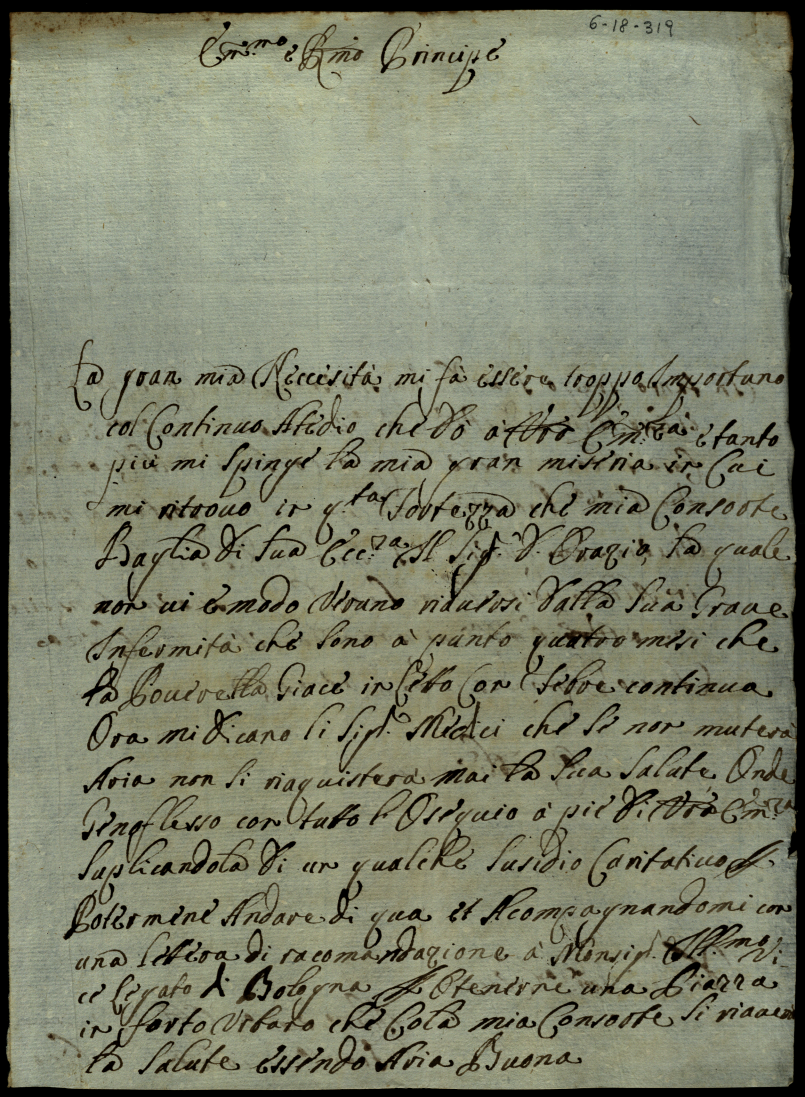 6-18-319
Em.mo e Rmo Principe
La gran mia Neccesità mi fà essere troppo Importuno
col Continuo Atedio che dò a Vrã Em.za e tanto
più mi spinge la mia gran miseria in Cui
mi ritrovo in q.ta fortezza che mia Consorte
Baglia di Sua Ecc.za Il Sig.r D. Orazio, la quale
non vi è modo veruno riaversi dalla Sua Grave
Infermità che sono à punto quatro mesi che
la Poverella Giace in Letto Con febre continua
Ora mi dicano li Sig.ri Medici che se non muterà
Aria non si riaquisterà mai la Sua Salute Onde
Genoflesso con tutto l'Osequio à piè di Vrã Em.za
Suplicandola di un qualche Susidio Caritativo p.
Potermene Andare di qua et Acompagnandomi con
una lettera di racomandazione à Monsig.r Ill.mo Vi
ce legato di Bologna p. Otenerne una Piazza
in forto Urbano che Colà mia Consorte Si riaverà
la Salute essendo Aria Buona